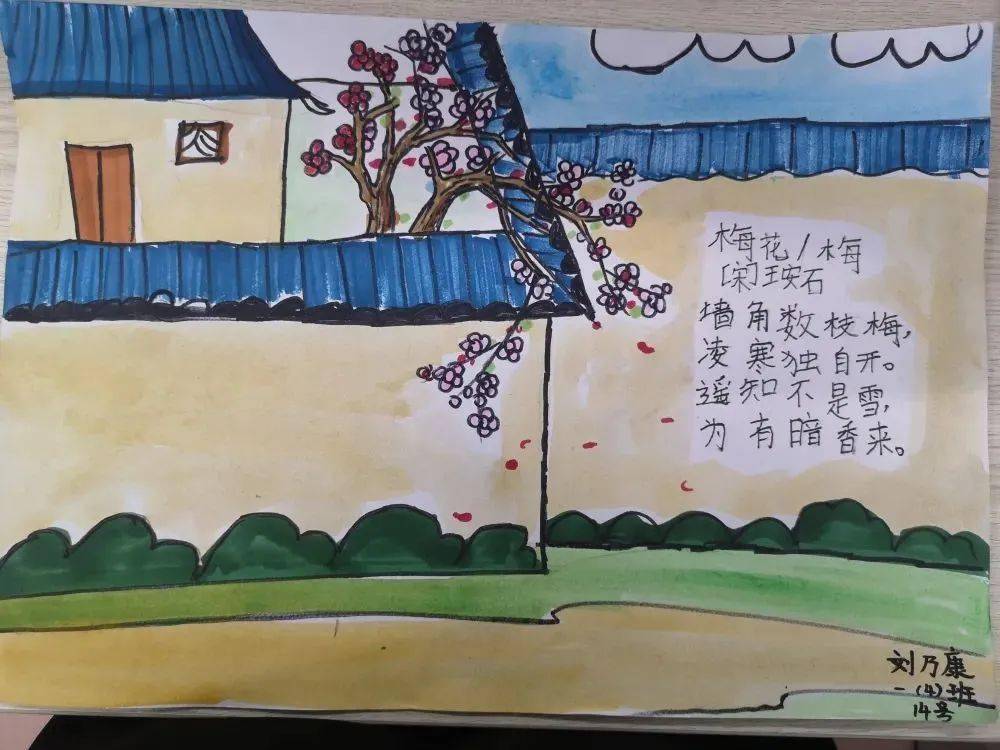 梅花/梅
[宋]王安石
墙角数枝梅,
凌寒独自开。
遥知不是雪,
为有暗香来。
刘乃康
一(4)班
14号